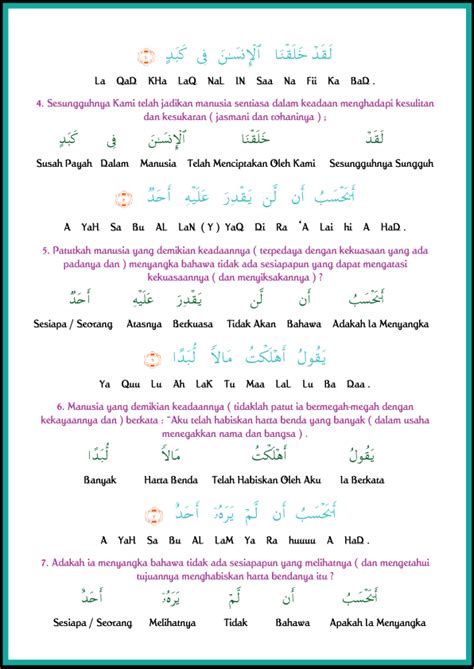 لَقَدْ خَلَقْنَا ٱلْإِنسَـٰنَ فِى كَبَدٍ
La QaD KHa LaQ NaL IN Saa Na Fii Ka BaD .
4. Sesungguhnya Kami telah jadikan manusia sentiasa dalam keadaan menghadapi kesulitan
dan kesukaran ( jasmani dan rohaninya ) ;
لَقَدْ خَلَقْنَا ٱلْإِنسَـٰنَ فِى كَبَدٍ
Susah Payah Dalam Manusia Telah Menciptakan Oleh Kami Sesungguhnya Sungguh
أَيَحْسَبُ أَن لَّن يَقْدِرَ عَلَيْهِ أَحَدٌ
A YaH Sa Bu AL LaN ( Y ) YaQ Di Ra 'A Lai hi A HaD .
5. Patutkah manusia yang demikian keadaannya ( terpedaya dengan kekuasaan yang ada
padanya dan ) menyangka bahawa tidak ada sesiapapun yang dapat mengatasi
kekuasaannya ( dan menyiksakannya ) ?
أَيَحْسَبُ أَن لَّن يَقْدِرَ عَلَيْهِ أَحَدٌ
Sesiapa / Seorang Atasnya Berkuasa Tidak Akan Bahawa Adakah Ia Menyangka
يَقُولُ أَهْلَكْتُ مَالًا لُّبَدًا
Ya Quu Lu Ah LaK Tu Maa LaL Lu Ba Daa .
6. Manusia yang demikian keadaannya ( tidaklah patut ia bermegah-megah dengan
kekayaannya dan ) berkata : "Aku telah habiskan harta benda yang banyak ( dalam usaha
menegakkan nama dan bangsa ) .
يَقُولُ أَهْلَكْتُ مَالًا لُّبَدًا
Banyak Harta Benda Telah Habiskan Oleh Aku Ia Berkata
أَيَحْسَبُ أَن لَّمْ يَرَهُۥٓ أَحَدٌ
A YaH Sa Bu AL LaM Ya Ra huuuu A HaD .
7. Adakah ia menyangka bahawa tidak ada sesiapapun yang melihatnya ( dan mengetahui
tujuannya menghabiskan harta bendanya itu ?
أَيَحْسَبُ أَن لَّمْ يَرَهُۥٓ أَحَدٌ
Sesiapa / Seorang Melihatnya Tidak Bahawa Apakah Ia Menyangka